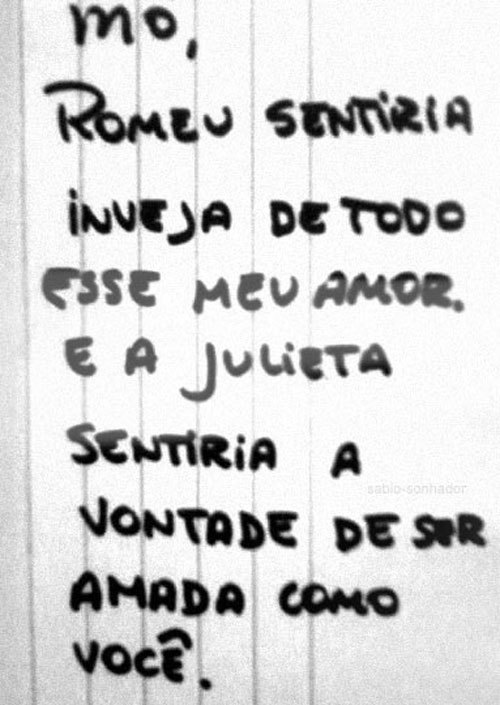 mo,
ROMEU SENTIRIA
INVEJA DE TODO
ESSE MEU AMOR.
E A JULIETA
SENTIRIA A
sabio-sonhador
VONTADE DE SER
AMADA COMO
VOCÊ.